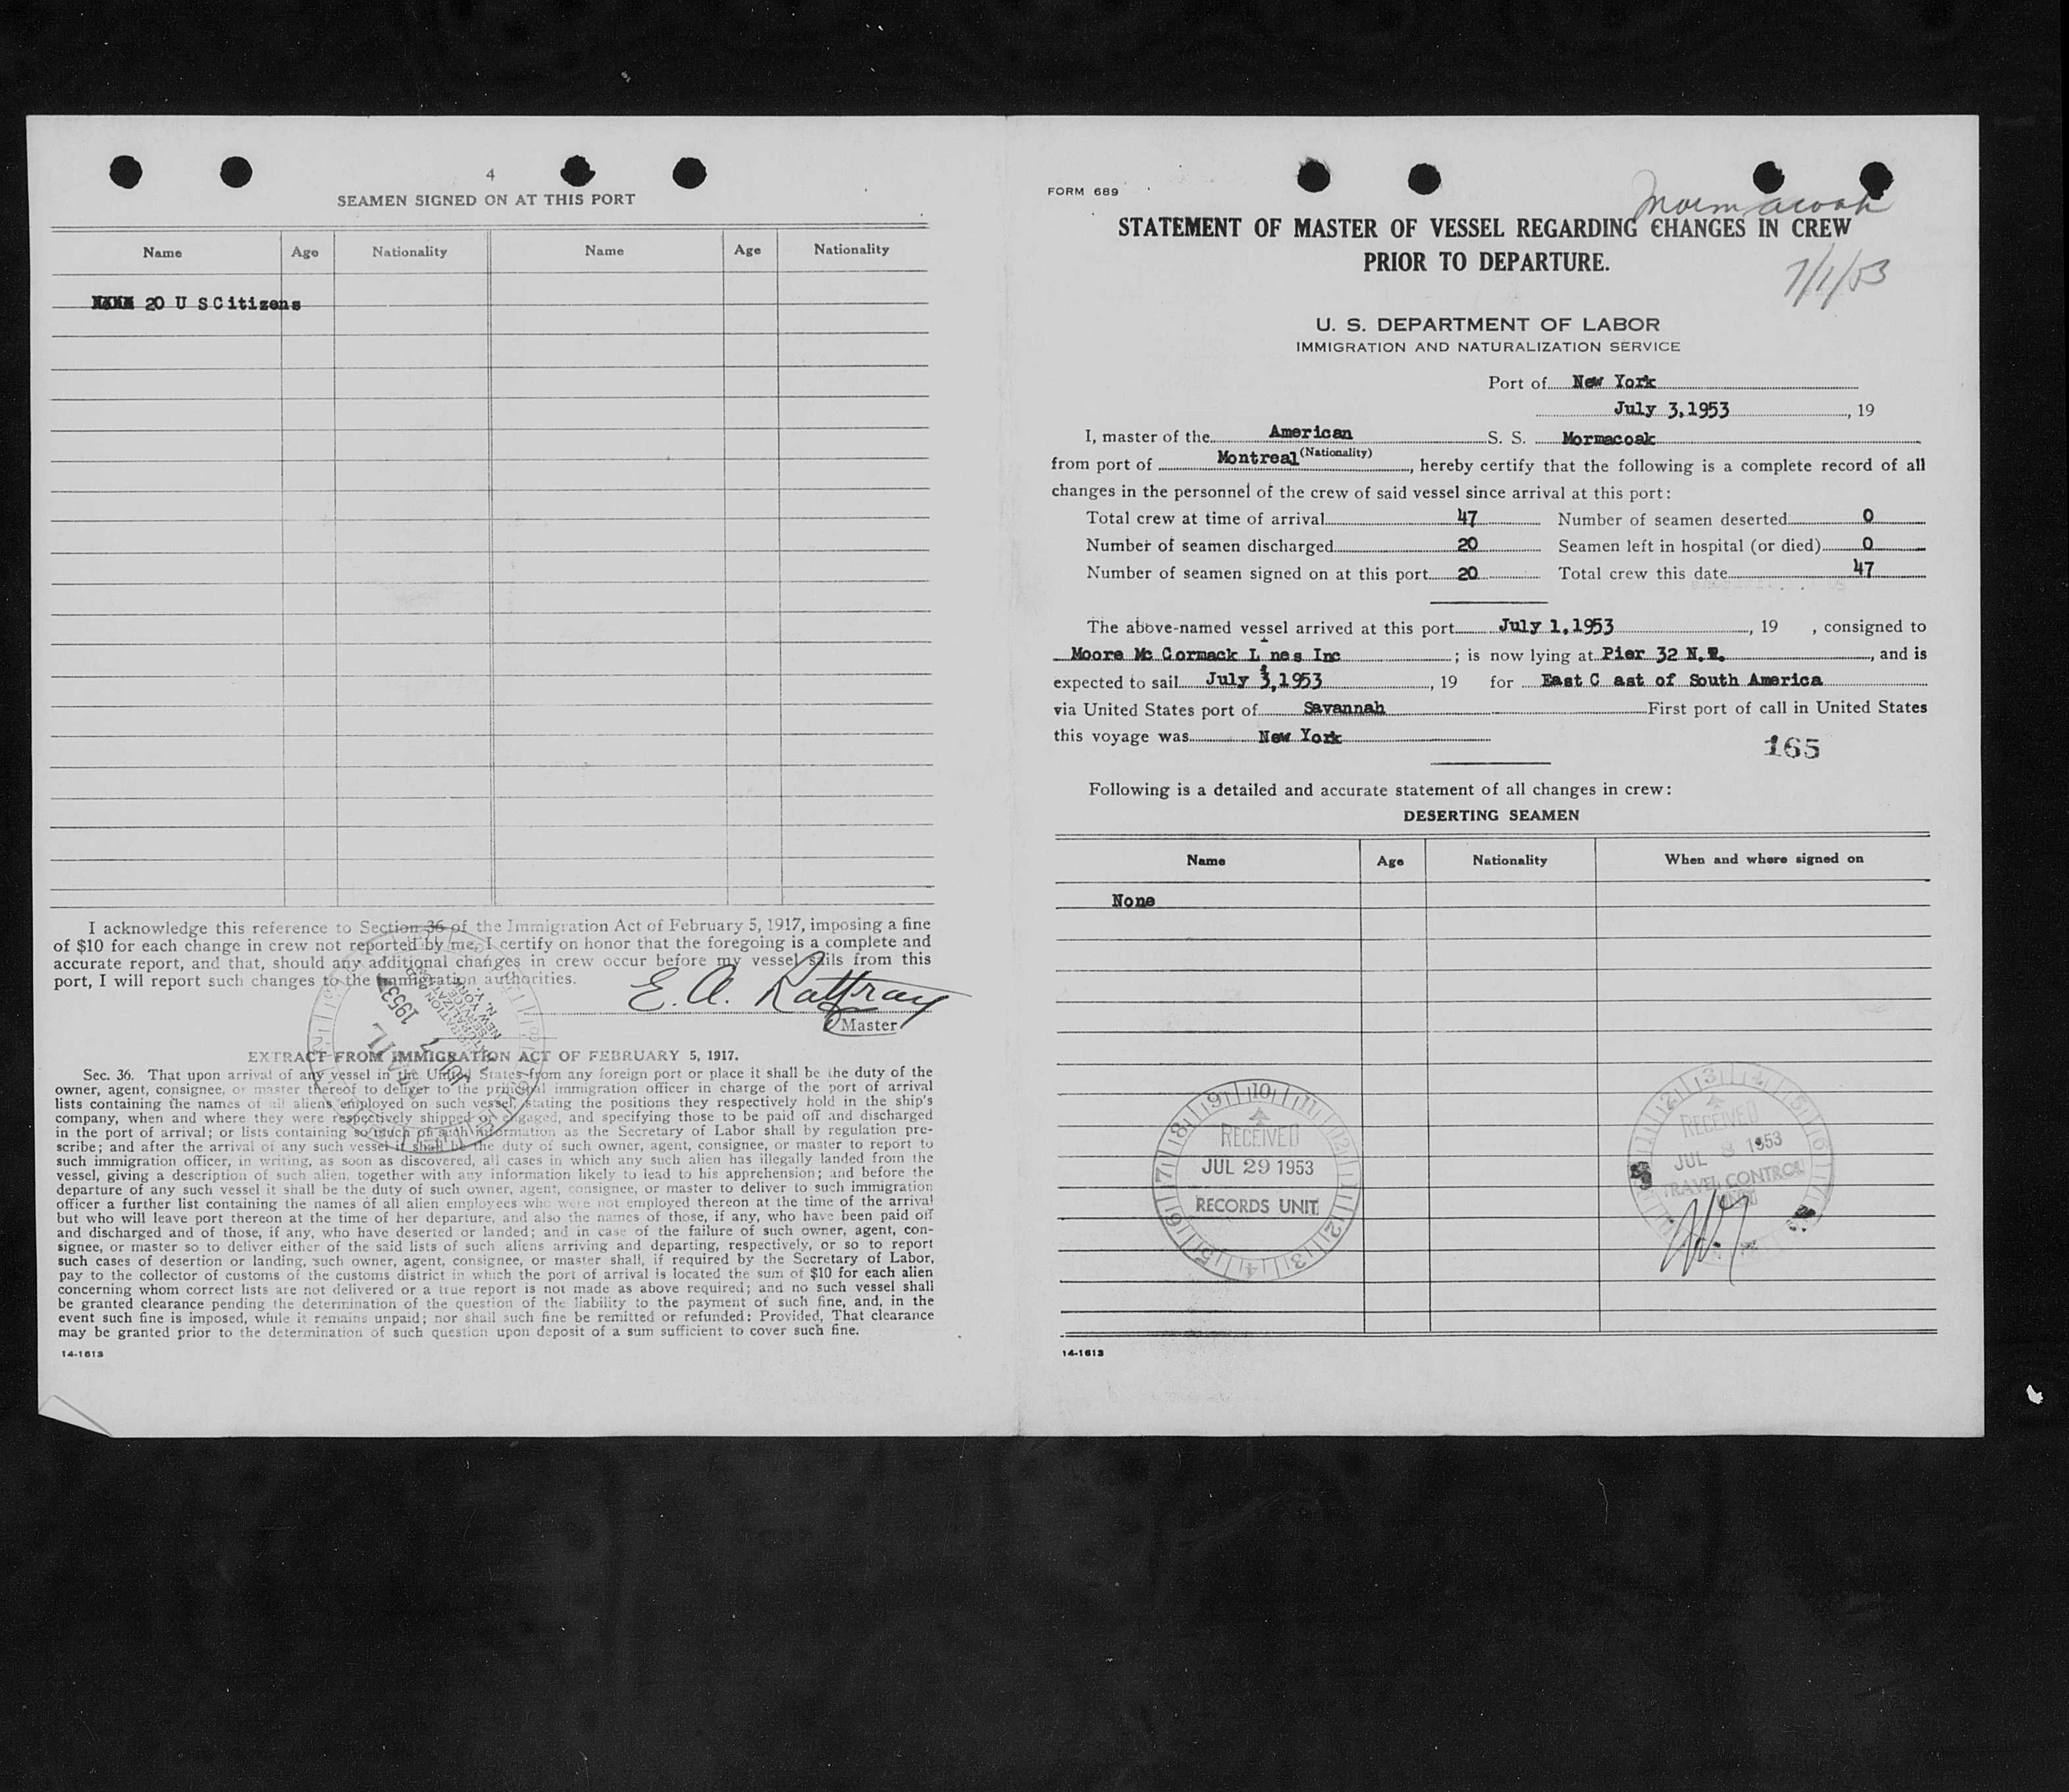 4
SEAMEN SIGNED ON AT THIS PORT
Name Age Nationality Name Age Nationality
20 U S Citizens
I acknowledge this reference to Section 36 of the Immigration Act of February 5, 1917, imposing a fine
of $10 for each change in crew not reported by me, I certify on honor that the foregoing is a complete and
accurate report, and that, should any additional changes in crew occur before my vessel sails from this
port, I will report such changes to the immigration authorities.
E. A. Rattray
Master
EXTRACT FROM IMMIGRATION ACT OF FEBRUARY 5, 1917.
Sec. 36. That upon arrival of any vessel in the United States from any foreign port or place it shall be the duty of the
owner, agent, consignee, or master thereof to deliver to the principal immigration officer in charge of the port of arrival
lists containing the names of all aliens employed on such vessel, stating the positions they respectively hold in the ship's
company, when and where they were respectively shipped or engaged, and specifying those to be paid off and discharged
in the port of arrival; or lists containing so much of such information as the Secretary of Labor shall by regulation pre-
scribe; and after the arrival of any such vessel it shall be the duty of such owner, agent, consignee, or master to report to
such immigration officer, in writing, as soon as discovered, all cases in which any such alien has illegally landed from the
vessel, giving a description of such alien, together with any information likely to lead to his apprehension; and before the
departure of any such vessel it shall be the duty of such owner, agent, consignee, or master to deliver to such immigration
officer a further list containing the names of all alien employees who were not employed thereon at the time of the arrival
but who will leave port thereon at the time of her departure, and also the names of those, if any, who have been paid off
and discharged and of those, if any, who have deserted or landed; and in case of the failure of such owner, agent, con-
signee, or master so to deliver either of the said lists of such aliens arriving and departing, respectively, or so to report
such cases of desertion or landing, such owner, agent, consignee, or master shall, if required by the Secretary of Labor,
pay to the collector of customs of the customs district in which the port of arrival is located the sum of $10 for each alien
concerning whom correct lists are not delivered or a true report is not made as above required; and no such vessel shall
be granted clearance pending the determination of the question of the liability to the payment of such fine, and, in the
event such fine is imposed, while it remains unpaid; nor shall such fine be remitted or refunded: Provided, That clearance
may be granted prior to the determination of such question upon deposit of a sum sufficient to cover such fine.
14-1613
FORM 689
Mormacoak
STATEMENT OF MASTER OF VESSEL REGARDING CHANGES IN CREW
PRIOR TO DEPARTURE.
7/1/53
U. S. DEPARTMENT OF LABOR
IMMIGRATION AND NATURALIZATION SERVICE
Port of New York
July 3,1953, 19
I, master of the American S. S. Mormacoak
(Nationality)
from port of Montreal, hereby certify that the following is a complete record of all
changes in the personnel of the crew of said vessel since arrival at this port:
Total crew at time of arrival 47 Number of seamen deserted 0
Number of seamen discharged 20 Seamen left in hospital (or died) 0
Number of seamen signed on at this port 20 Total crew this date 47
The above-named vessel arrived at this port July 1,1953, 19 , consigned to
Moore Mc Cormack L nes Inc ; is now lying at Pier 32 N.R., and is
expected to sail July 3,1953, 19 for East C ast of South America
via United States port of Savannah First port of call in United States
this voyage was New York
165
Following is a detailed and accurate statement of all changes in crew:
DESERTING SEAMEN
Name Age Nationality When and where signed on
None
RECEIVED
JUL 29 1953
RECORDS UNIT
RECEIVED
JUL 8 1953
TRAVEL CONTROL
UNIT
14-1613